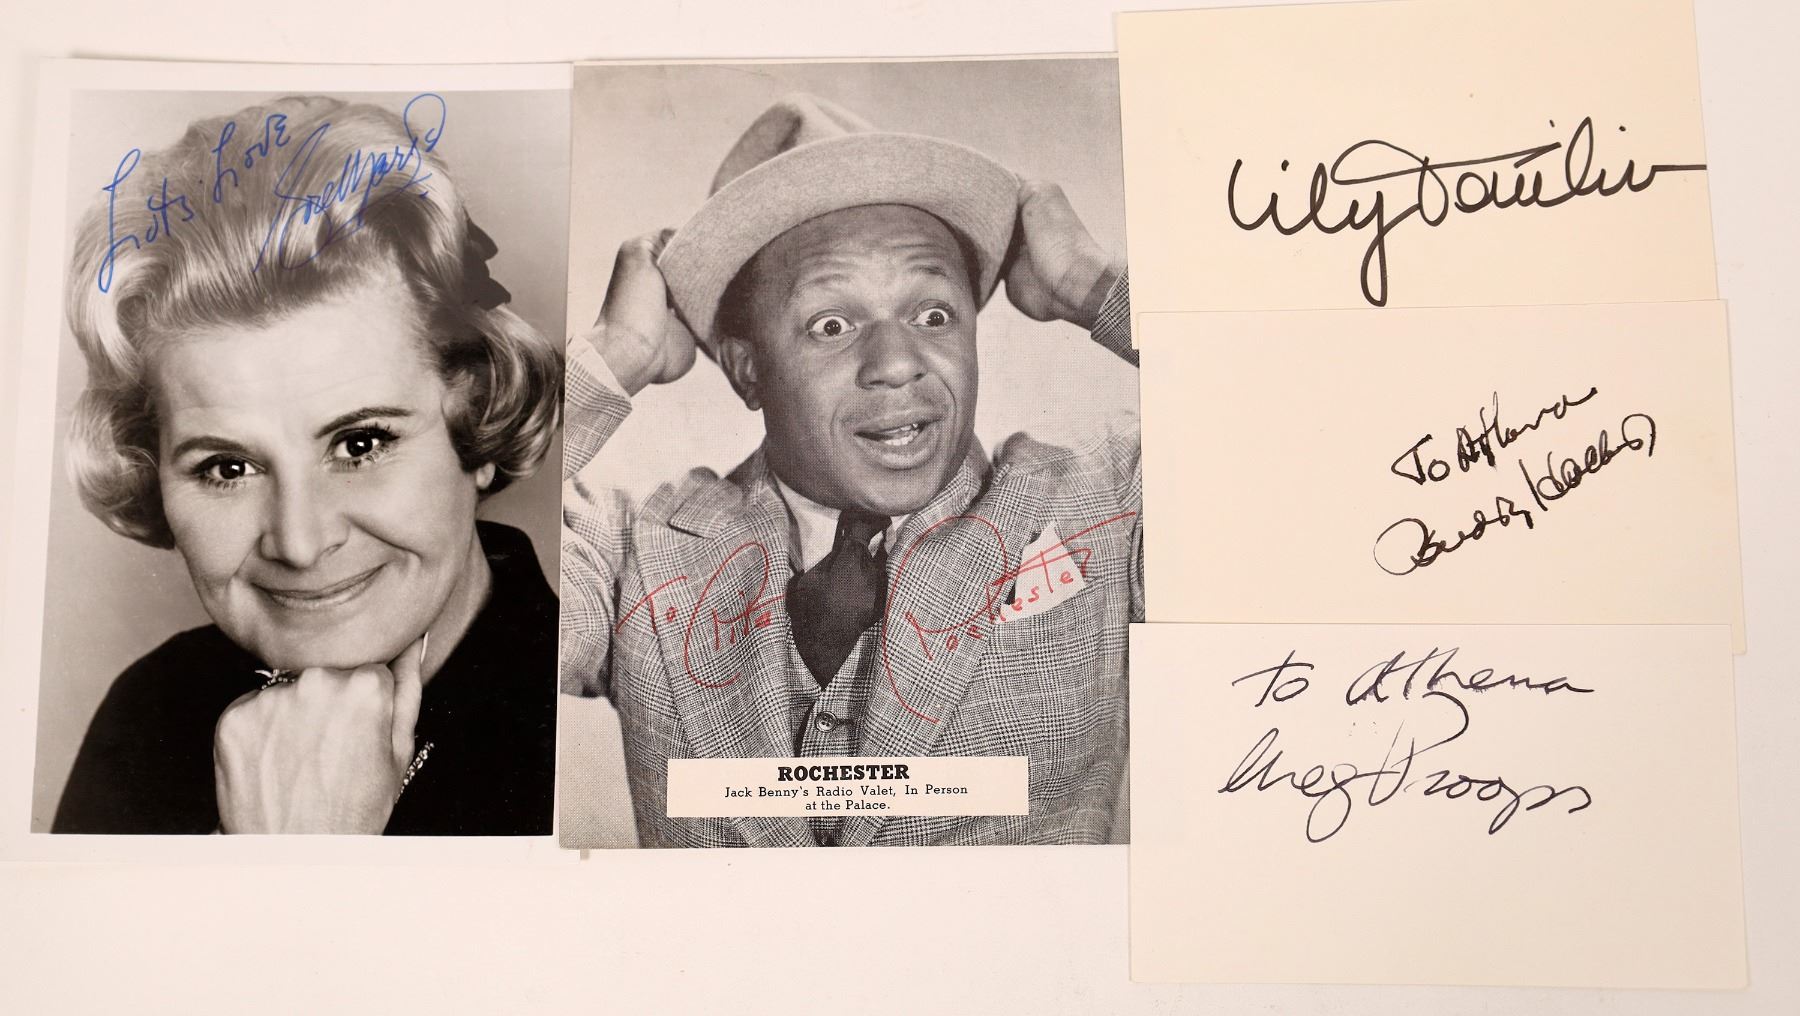 Lots Love
Rose Marie
To Rita
Rochester
ROCHESTER
Jack Benny's Radio Valet, In Person
at the Palace.
Lily Tomlin
To Athena
Buddy Hackett
To Athena
Greg Proops